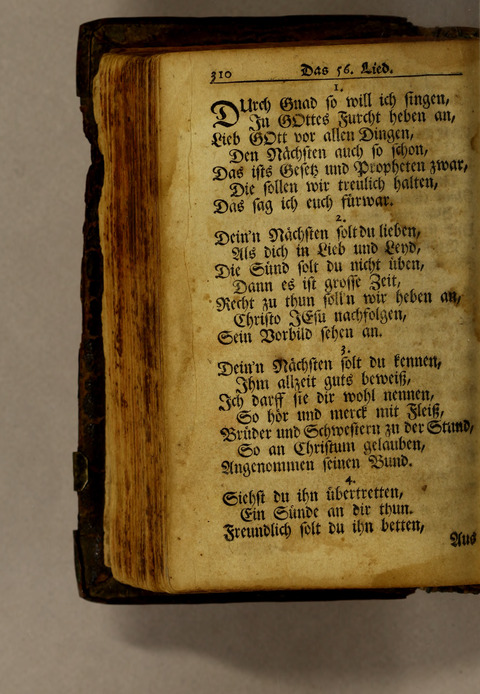 310 Das 56. Lied.
1.
DUrch Gnad so will ich singen,
In GOttes Furcht heben an,
Lieb GOtt vor allen Dingen,
Den Nächsten auch so schon,
Das ists Gesetz und Propheten zwar,
Die sollen wir treulich halten,
Das sag ich euch fürwar.
2.
Dein'n Nächsten solt du lieben,
Als dich in Lieb und Leyd,
Die Sünd solt du nicht üben,
Dann es ist grosse Zeit,
Recht zu thun soll'n wir heben an,
Christo JEsu nachfolgen,
Sein Vorbild sehen an.
3.
Dein'n Nächsten solt du kennen,
Ihm allzeit guts beweiß,
Ich darff sie dir wohl nennen,
So hör und merck mit Fleiß,
Brüder und Schwestern zu der Stund,
So an Christum gelauben,
Angenommen seinen Bund.
4.
Siehst du ihn übertretten,
Ein Sünde an dir thun.
Freundlich solt du ihn betten,
Aus